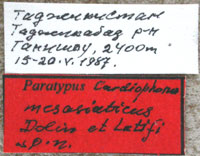 Таджикистан
Таджикабад р-н
2400m
15-20.V.1987.
Paratypus Cardiophorus
mesasiaticus
Dolin et Latifi
sp. n.